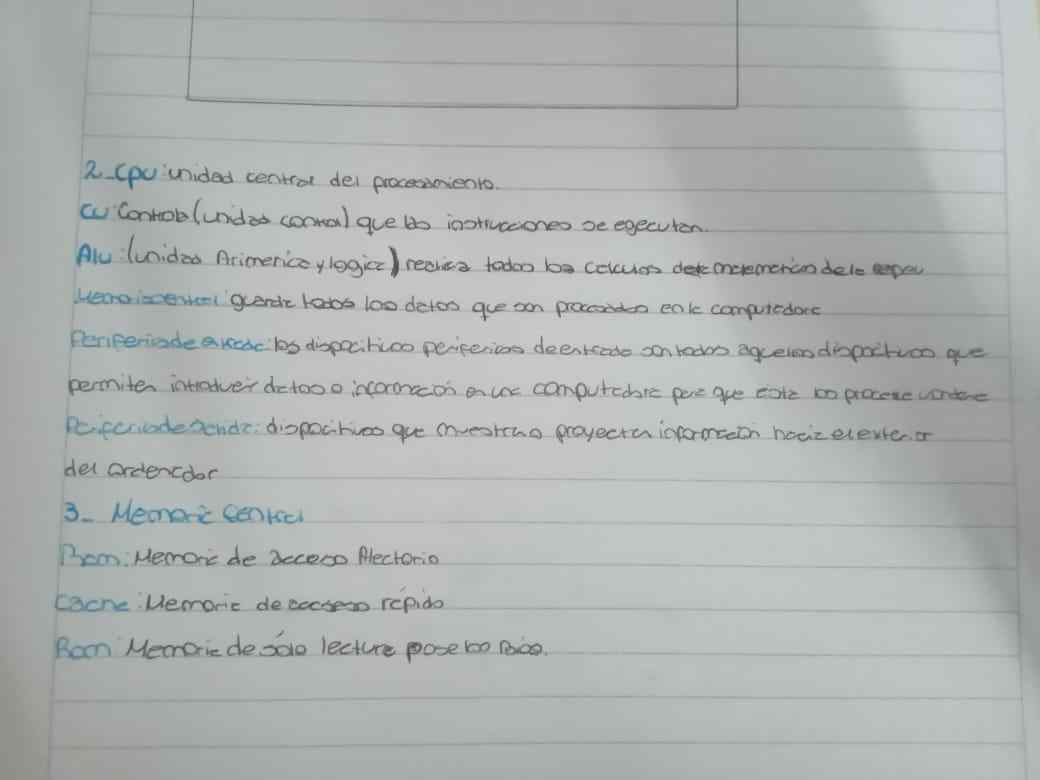 2_Cpu: unidad central del procesamiento.
CU: Controla (unidad control) que las instrucciones se egecutan.
Alu: (unidad Arimerica y logica) realiza todos los calculos de la
Memoria central guarda todos los datos que son procesados en la computadora
Periferia de entrada: los dispocitivos periferios de entrada son todos aquellos dispocitivos que
permiten introducir datos o informacion en una computadora para que esta los procese
Periferia de salida: dispocitivos que muestra o proyecta informacion hacia el exterior
del ordenador
3_ Memoria Central
Ram: Memoria de acceso Alectorio
Cache: Memoria de accseso rápido
Rom: Memoria de sólo lectura pose los Bios.